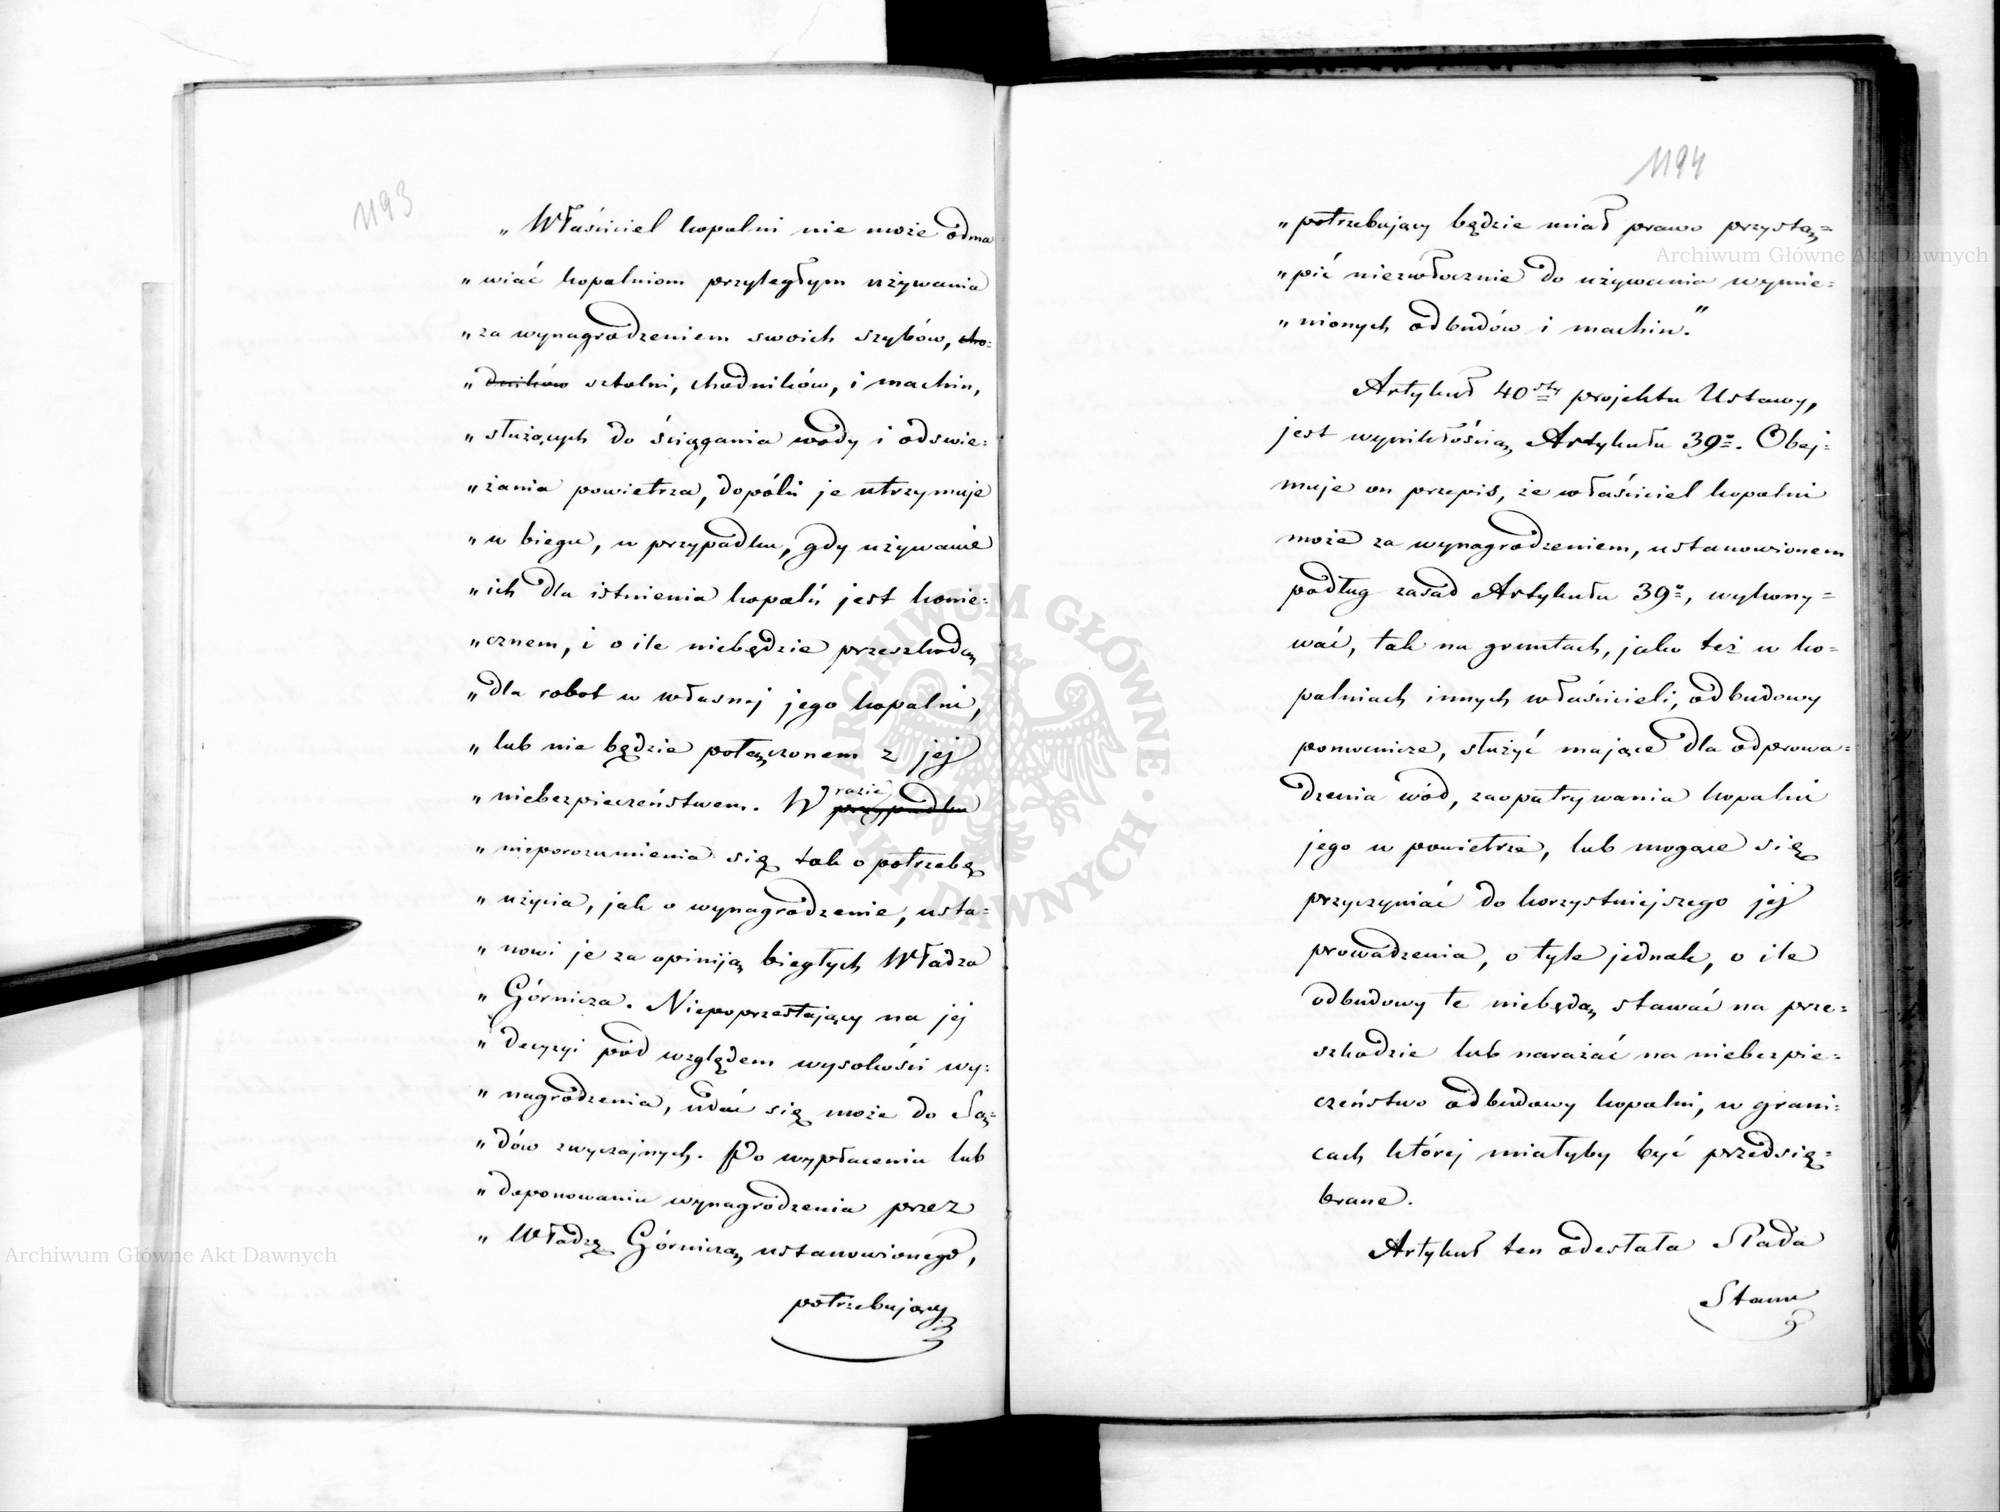 1193
„ Właściciel kopalni nie może odma-
„ wiać kopalniom przyległym używania
„ za wynagrodzeniem swoich szybów, cho-
„ dników sztolni, chodników, i machin,
„ służących do ściągania wody i odświe-
„ żania powietrza, dopóki je utrzymuje
„ w biegu, w przypadku, gdy używanie
„ ich dla istnienia kopalń jest konie-
„ cznem, i o ile niebędzie przeszkodą
„ dla robot w własnej jego kopalni,
„ lub nie będzie połączonem z jej
„ niebezpieczeństwem. W razie przypadku
„ nieporozumienia się tak o potrzebę
„ użycia, jak o wynagrodzenie, usta-
„ nowi je za opiniją biegłych Władza
„ Górnicza. Niepoprzestający na jej
„ decyzyi pod względem wysokości wy-
„ nagrodzenia, udać się może do Są-
„ dów zwyczajnych. Po wypłaceniu lub
„ deponowaniu wynagrodzenia przez
„ Władzę Górniczą ustanowionego,
potrzebujący
1194
„ potrzebujący będzie miał prawo przystą-
„ pić niezwłocznie do używania wymie-
„ nionych odbudów i machin."
Artykuł 40sty projektu Ustawy,
jest wynikłością Artykułu 39o. Obej-
muje on przepis, że właściciel kopalni
może za wynagrodzeniem, ustanowionem
podług zasad Artykułu 39o, wykony-
wać, tak na gruntach, jako też w ko-
palniach innych właścicieli, odbudowy
pomocnicze, służyć mające dla odprowa-
dzenia wód, zaopatrywania kopalni
jego w powietrze, lub mogące się
przyczyniać do korzystniejszego jej
prowadzenia, o tyle jednak, o ile
odbudowy te niebędą stawać na prze-
szkodzie lub narażać na niebezpie-
czeństwo odbudowy kopalni, w grani-
cach której miałyby być przedsię-
brane.
Artykuł ten odesłała Rada
Stanu
Archiwum Główne Akt Dawnych
Archiwum Główne Akt Dawnych
ARCHIWUM GŁÓWNE AKT DAWNYCH